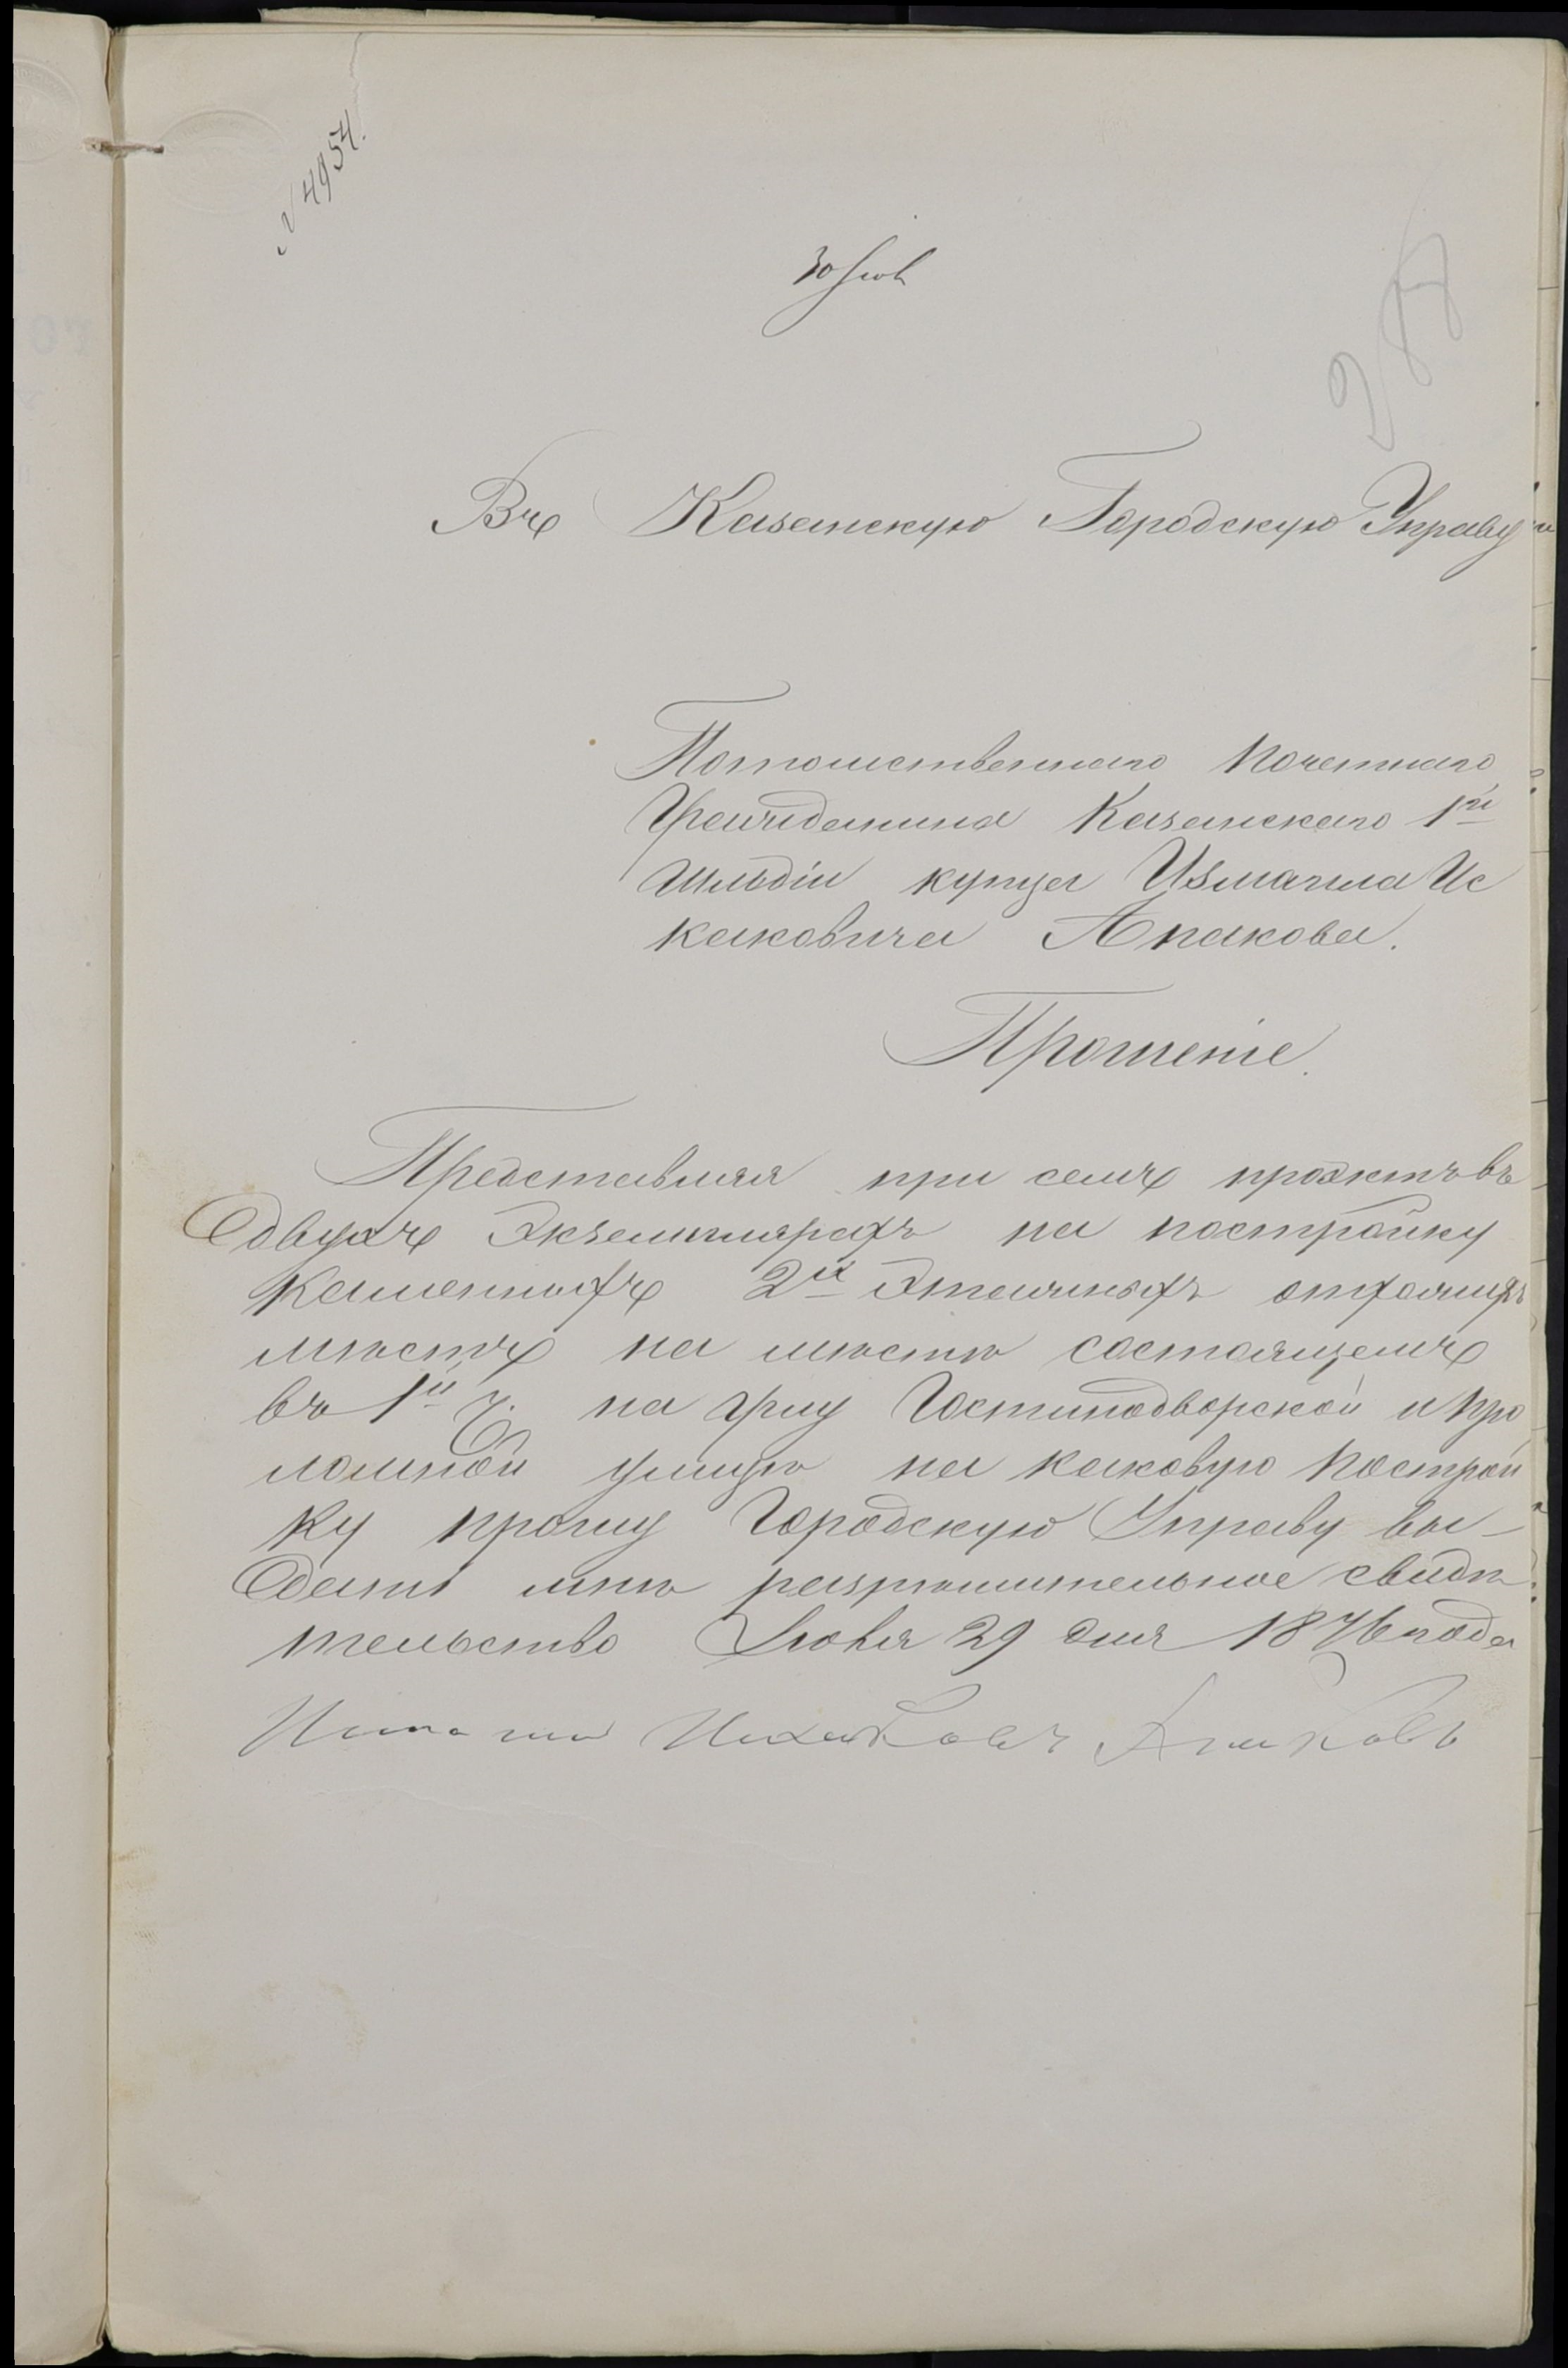 № 4954.
30 Іюня
Въ Казанскую Городскую Управу
Потомственнаго почетнаго
Гражданина Казанскаго 1й
гильдіи купца Измаила Ис
каковича Апакова.
Прошеніе.
Представляя при семъ проэктъ въ
двухъ Экземплярахъ на постройку
каменныхъ 2х Этажныхъ отхожихъ
мѣстъ на мѣстѣ состоящемъ
въ 1й ч. на углу Гостинодворской и Про
ломной улицъ на каковую построй
ку прошу Городскую Управу вы-
дать мнѣ разрѣшительное свидѣ
тельство Іюня 29 дня 1876 года
Исмаилъ Исхаковъ Апаковъ